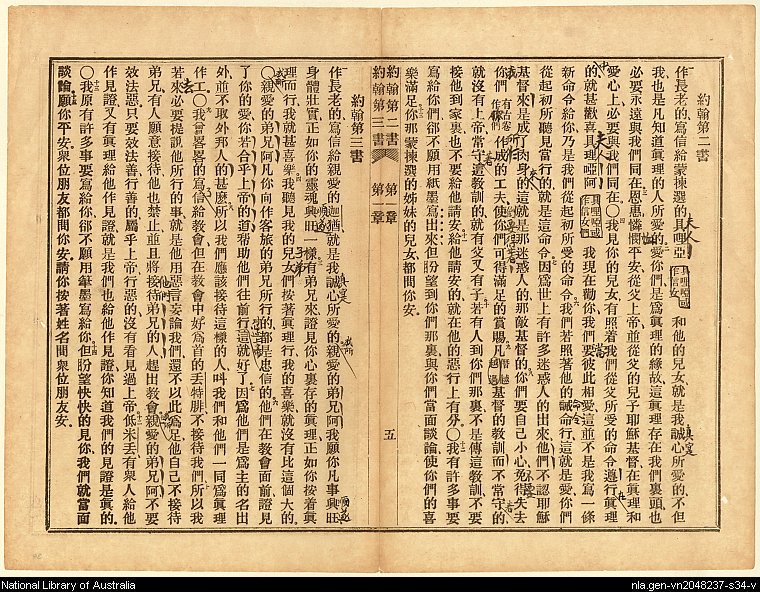 約翰第二書
作長老的寫信給蒙揀選的具哩亞和他的兒女就是我誠心所愛的不但
我也是凡知道眞理的人所愛的愛你們是爲眞理的緣故這眞理存在我們裏頭也
必要永遠與我們同在恩惠憐憫平安從父上帝並從父的兒子耶穌基督在眞理和
愛心上必要與我們同在〇我見你的兒女有照着我們從父所受的命令遵行眞理
的就甚歡喜具理啞阿我現在勸你我們要彼此相愛這並不是我爲一條
新命令給你乃是我們從起初所受的命令我們若照著他的誡命行這就是愛你們
從起初所聽見當行的就是這命令因爲世上有許多迷惑人的出來他們不認耶穌
基督來是成了肉身的這就是那迷惑人的那敵基督的你們要自己小心免得失去
你們有古卷作我們作成的工夫使你們可得滿足的賞賜凡越過基督的教訓而不常守的
就沒有上帝常守這教訓的就有父又有子若有人到你們那裏不是傳這教訓不要
接他到家裏也不要給他請安給他請安的就在他的惡行上有分〇我有許多事要
寫給你們卻不願用紙墨寫出來但盼望到你們那裏與你們當面談論使你們的喜
樂滿足你那蒙揀選的姊妹的兒女都問你安
約翰第二書 第一章
五
約翰第三書 第一章
約翰第三書
作長老的寫信給親愛的迦猶就是我誠心所愛的親愛的弟兄阿我願你凡事興旺
身體壯實正如你的靈魂興旺一樣有弟兄來證見你心裏存的眞理正如你按着眞
理而行我就甚喜樂我聽見我的兒女們按著眞理行我的喜樂就沒有比這個大的
〇親愛的弟兄阿凡你向作客旅的弟兄所行的都是忠信的他們在教會面前證見
了你的愛你若合乎上帝的道幫助他們往前行這就好了因爲他們是爲主的名出
外並不取外邦人的甚麽所以我們應該接待這樣的人叫我們和他們一同爲眞理
作工〇我曾畧畧的寫信給教會但在教會中好爲首的丟特腓不接待我們所以我
若來必要提說他所行的事就是他用惡言妄論我們還不以此爲足他自己不接待
弟兄有人願意接待他也禁止並且將接待弟兄的人趕出教會親愛的弟兄阿不要
效法惡只要效法善行善的屬乎上帝行惡的沒有看見過上帝低米丟有衆人給他
作見證又有眞理給他作見證就是我們也給他作見證你知道我們的見證是眞的
〇我原有許多事要寫給你卻不願用筆墨寫給你但盼望快快的見你我們就當面
談論願你平安衆位朋友都問你安請你按著姓名問衆位朋友安
National Library of Australia
nla.gen-vn2048237-s34-v